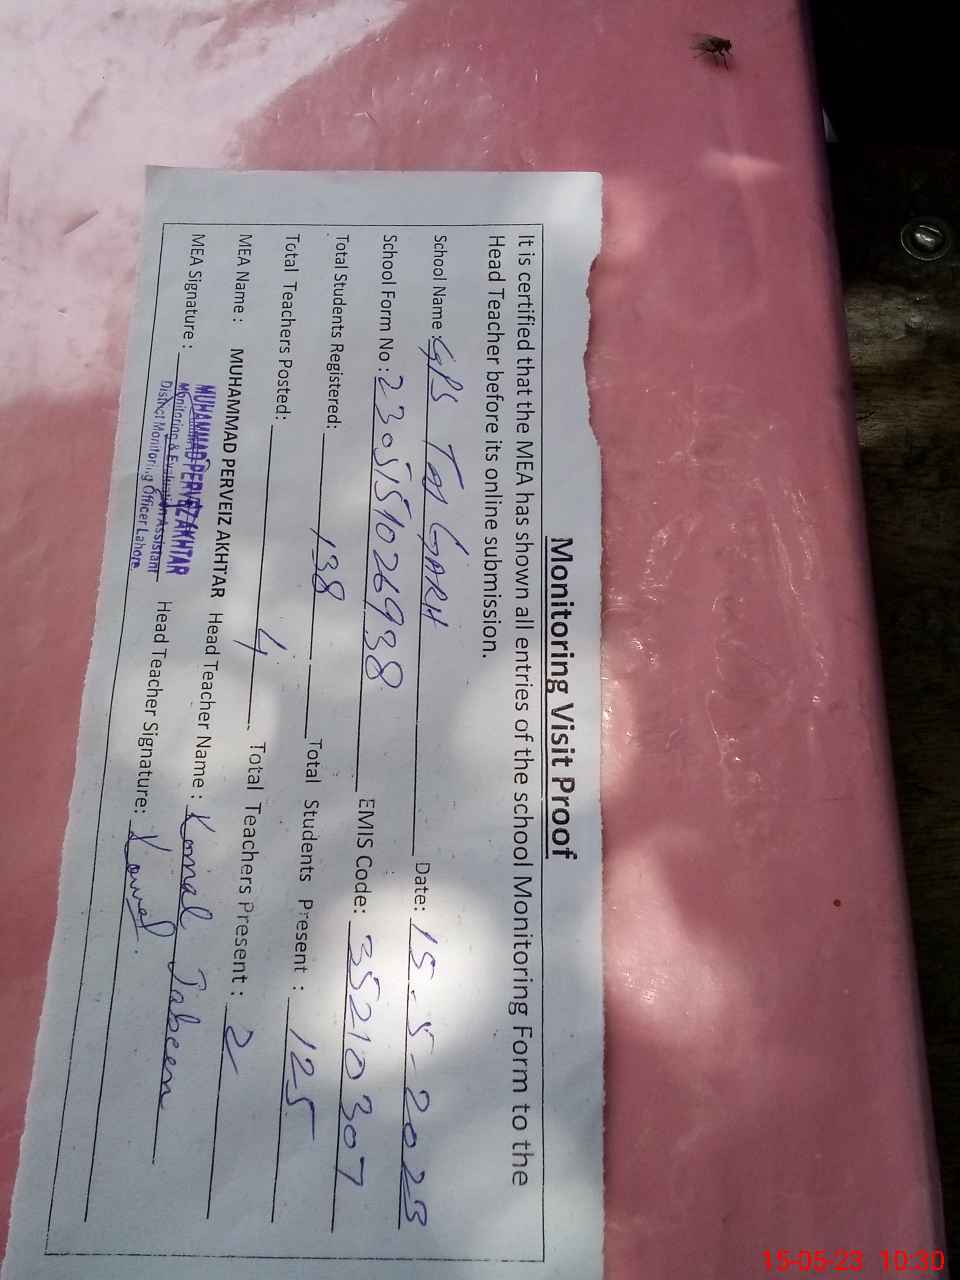 Monitoring Visit Proof
It is certified that the MEA has shown all entries of the school Monitoring Form to the
Head Teacher before its online submission.
School Name: GPS Taj GARH Date: 15-5-2023
School Form No: 2305151026938 EMIS Code: 35210307
Total Students Registered: 138 Total Students Present: 125
Total Teachers Posted: 4 Total Teachers Present: 2
MEA Name: MUHAMMAD PERVEIZ AKHTAR Head Teacher Name: Komal Jabeen
MEA Signature: Head Teacher Signature: Komal
MUHAMMAD PERVEIZ AKHTAR
Monitoring & Evaluation Assistant
District Monitoring Officer Lahore
15-05-23 10:30